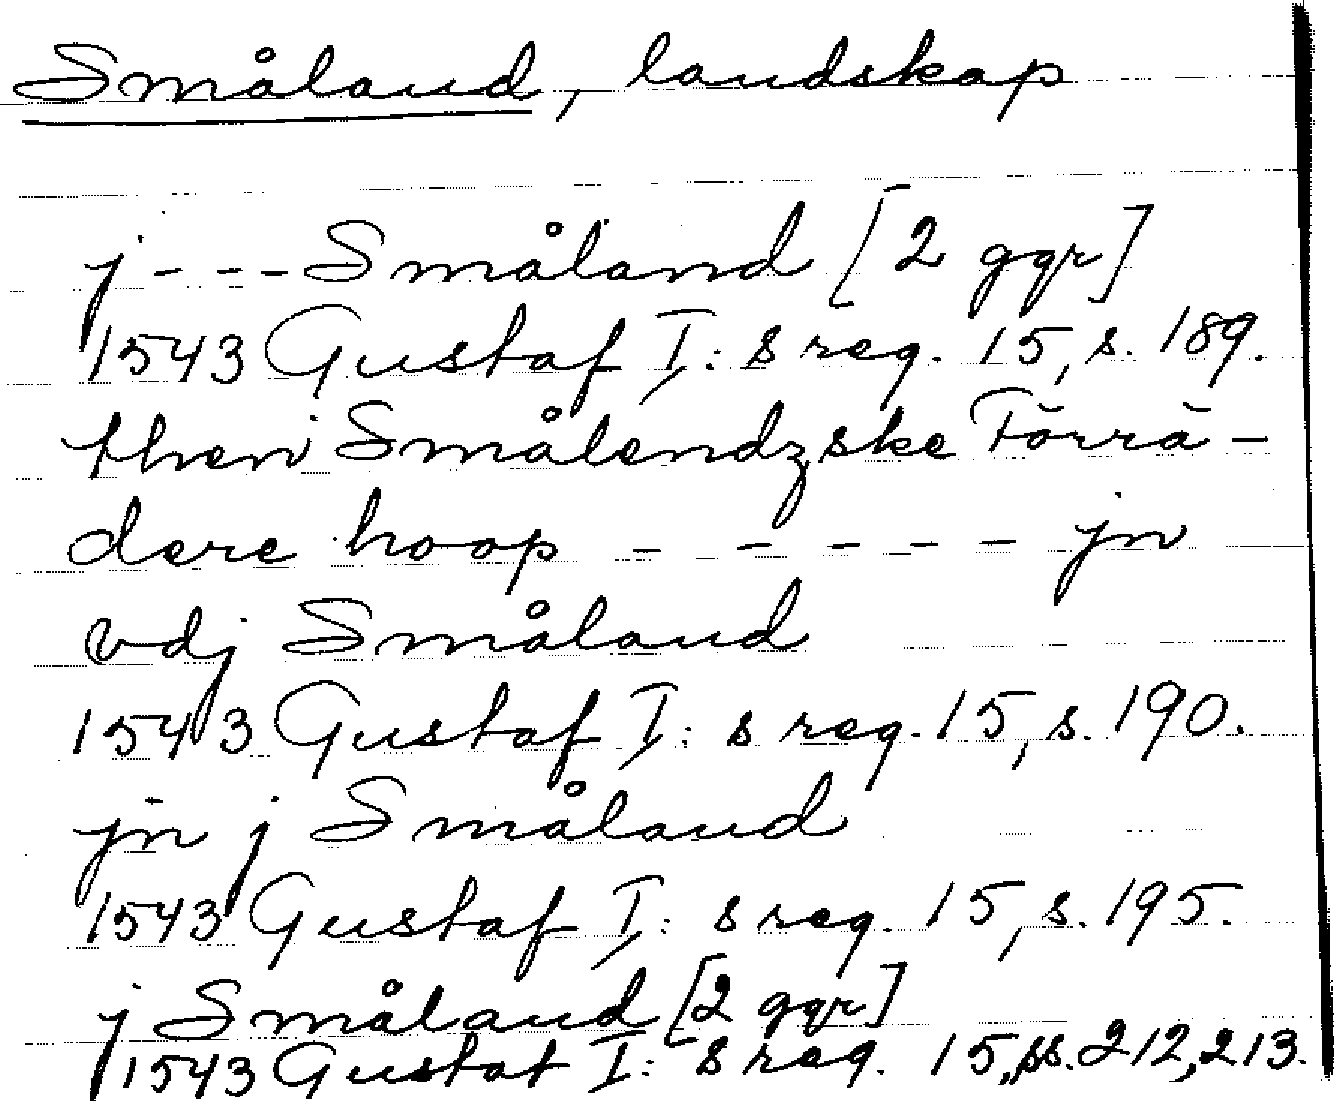 Småland, landskap
j - - - Småland [2 ggr]
1543 Gustaf I: s reg. 15, s. 189.
then Smålendzske Förrä-
dere hoop - - - - - jn
vdj Småland
1543 Gustaf I: s reg. 15, s. 190.
jn j Småland
1543 Gustaf I: s reg. 15, s. 195.
j Småland [2 ggr]
1543 Gustaf I: s reg. 15, ss. 212, 213.